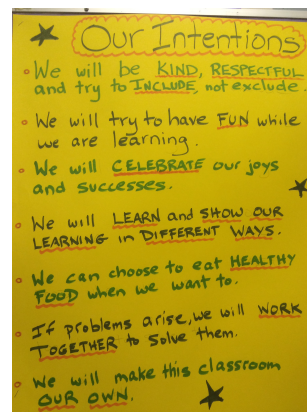 Our Intentions
We will be KIND, RESPECTFUL
and try to INCLUDE, not exclude.
We will try to have FUN while
we are learning.
We will CELEBRATE our joys
and successes.
We will LEARN and SHOW OUR
LEARNING in DIFFERENT WAYS.
We can choose to eat HEALTHY
FOOD when we want to.
If problems arise, we will WORK
TOGETHER to solve them.
We will make this classroom
OUR OWN.